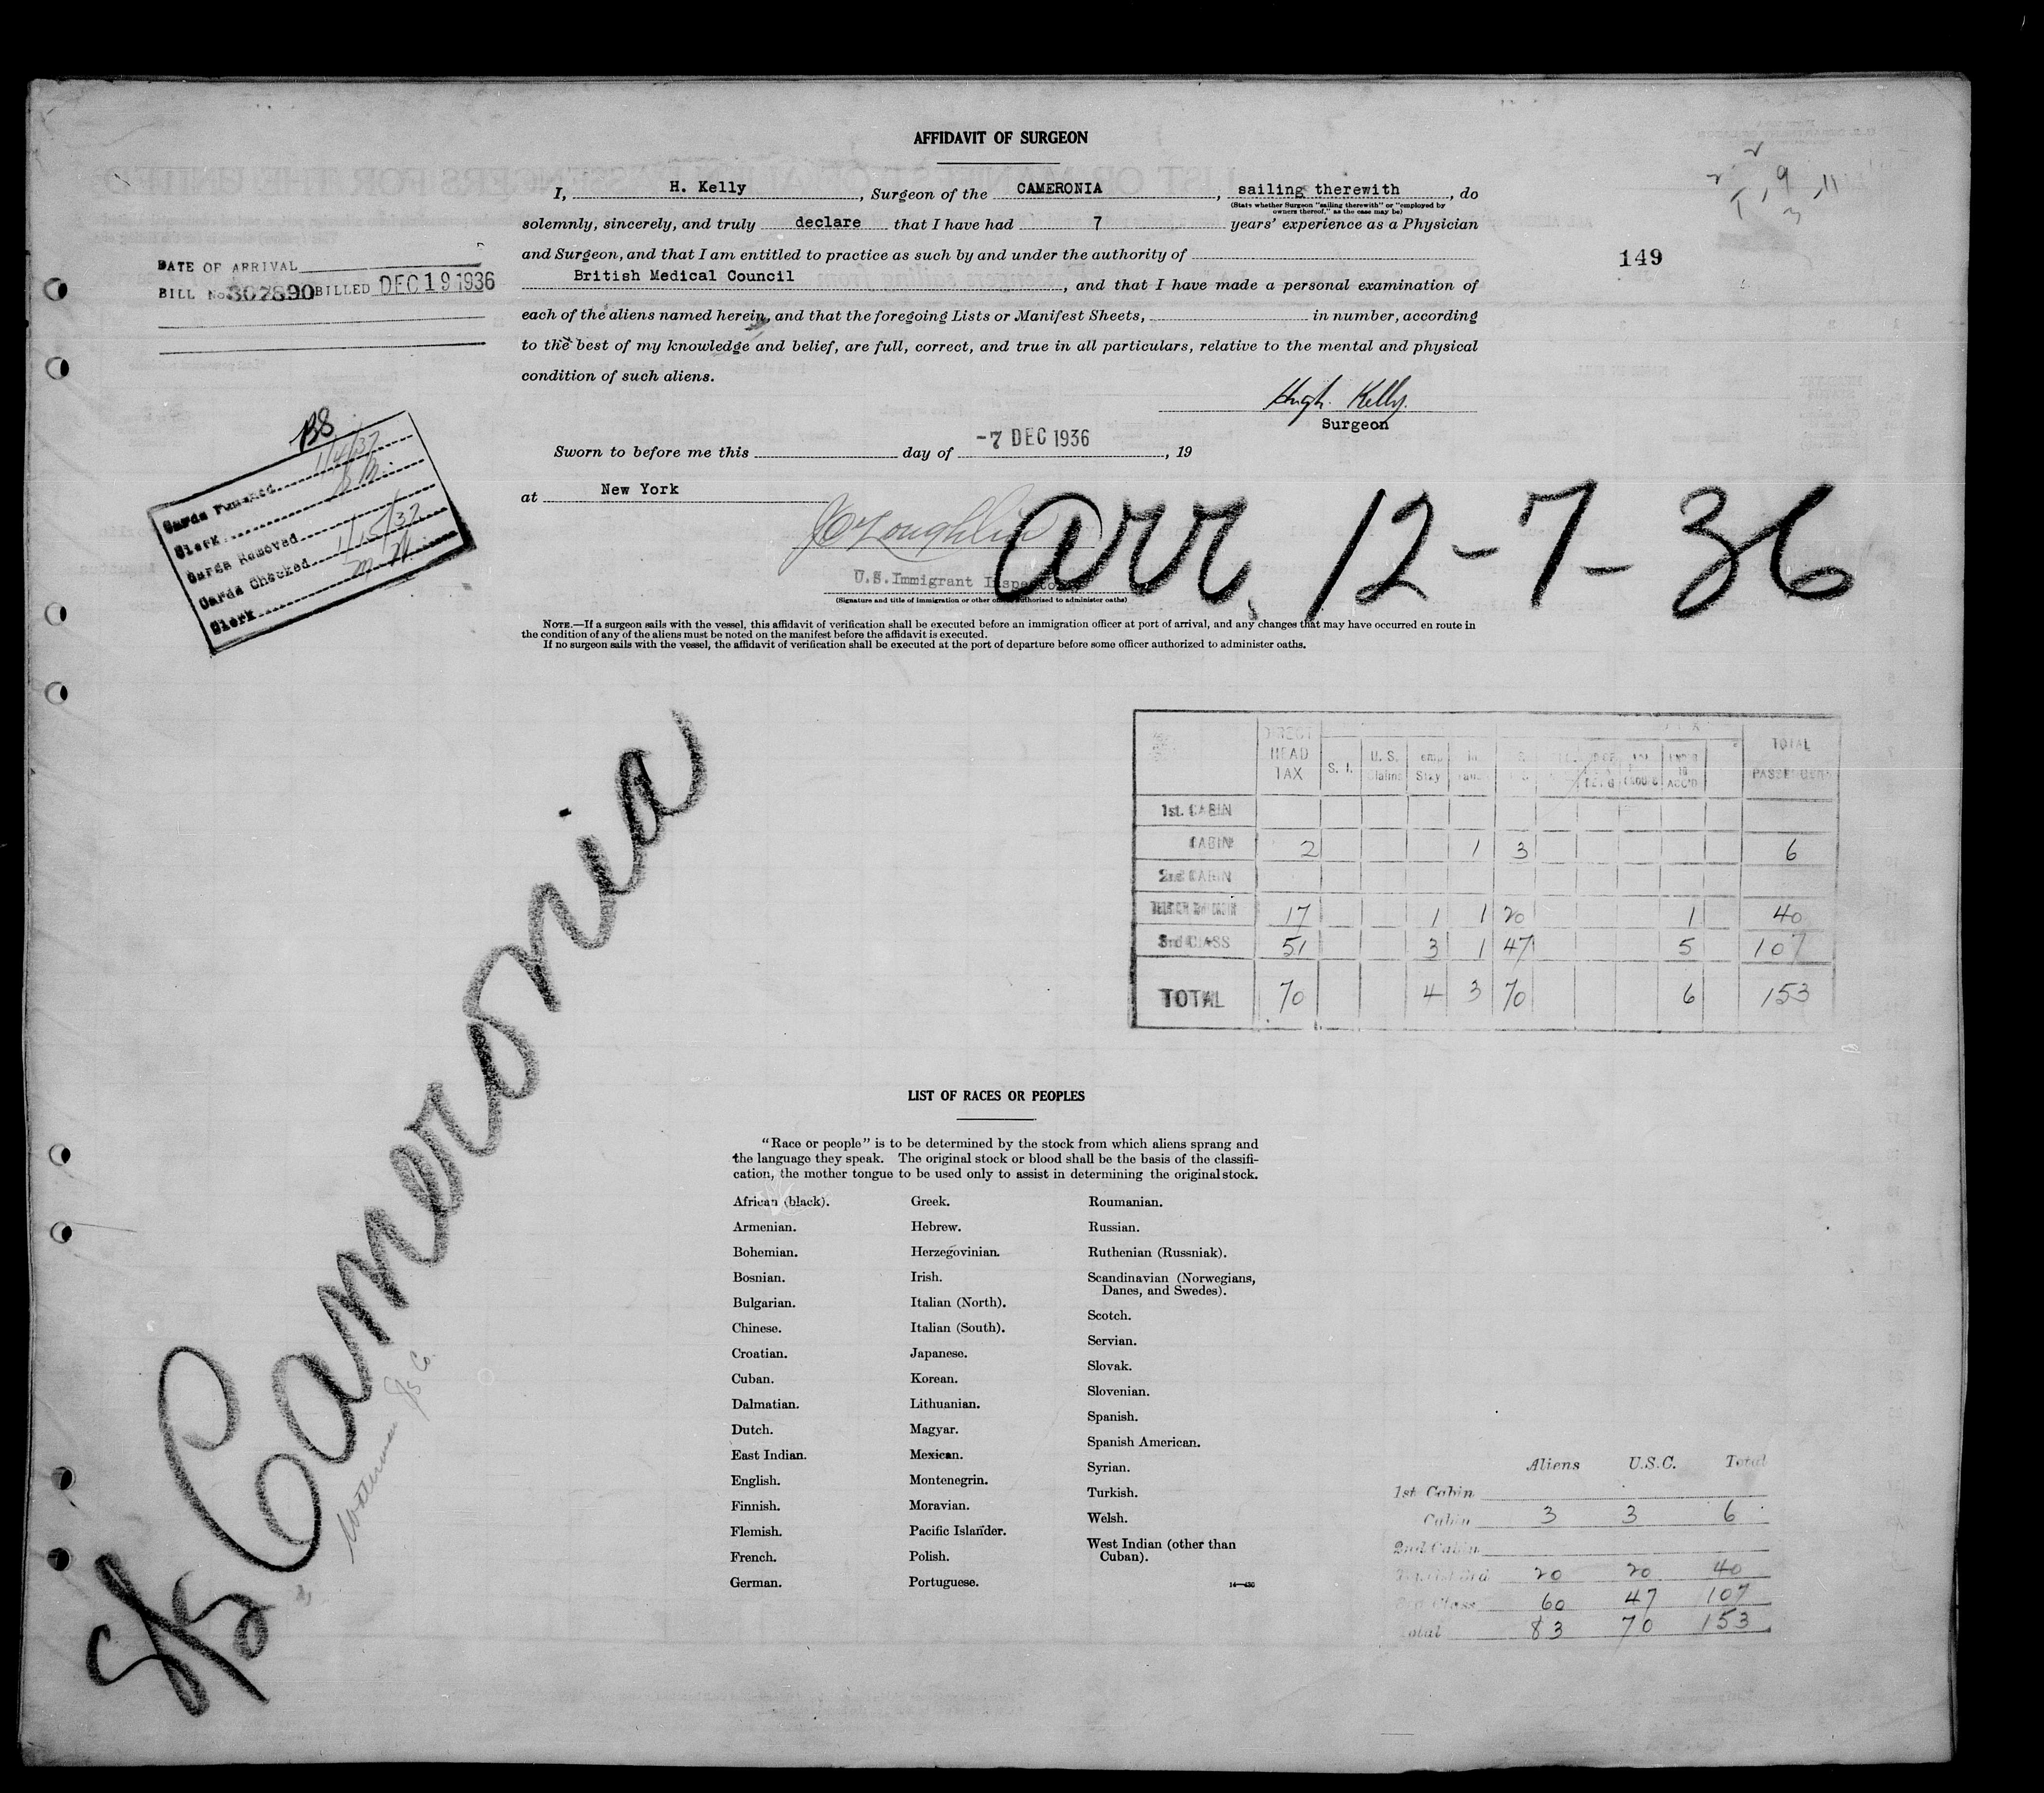 AFFIDAVIT OF SURGEON
I, H. Kelly, Surgeon of the CAMERONIA, sailing therewith, do
(State whether Surgeon "sailing therewith" or "employed by
owners thereof," as the case may be)
solemnly, sincerely, and truly declare that I have had 7 years' experience as a Physician
and Surgeon, and that I am entitled to practice as such by and under the authority of
British Medical Council, and that I have made a personal examination of
each of the aliens named herein, and that the foregoing Lists or Manifest Sheets, in number, according
to the best of my knowledge and belief, are full, correct, and true in all particulars, relative to the mental and physical
condition of such aliens.
Hugh Kelly.
Surgeon
Sworn to before me this day of -7 DEC 1936, 19
at New York
J O'Loughlin
U.S. Immigrant Inspector
(Signature and title of immigration or other officer authorized to administer oaths)
arr. 12-7-36
NOTE.—If a surgeon sails with the vessel, this affidavit of verification shall be executed before an immigration officer at port of arrival, and any changes that may have occurred en route in
the condition of any of the aliens must be noted on the manifest before the affidavit is executed.
If no surgeon sails with the vessel, the affidavit of verification shall be executed at the port of departure before some officer authorized to administer oaths.
149
DATE OF ARRIVAL
BILL No. 307890 BILLED DEC 19 1936
BS
Cards Punched 1/4/37
Clerk
Cards Removed
Cards Checked 1/15/37
Clerk
S/S Cameronia
DIRECT HEAD TAX S. I. U. S. TOTAL PASSENGERS
1st. CABIN
CABIN 2 1 3 6
2nd CABIN
17 1 1 20 1 40
3rd CLASS 51 3 1 47 5 107
TOTAL 70 4 3 70 6 153
LIST OF RACES OR PEOPLES
"Race or people" is to be determined by the stock from which aliens sprang and
the language they speak. The original stock or blood shall be the basis of the classifi-
cation, the mother tongue to be used only to assist in determining the original stock.
African (black).
Armenian.
Bohemian.
Bosnian.
Bulgarian.
Chinese.
Croatian.
Cuban.
Dalmatian.
Dutch.
East Indian.
English.
Finnish.
Flemish.
French.
German.
Greek.
Hebrew.
Herzegovinian.
Irish.
Italian (North).
Italian (South).
Japanese.
Korean.
Lithuanian.
Magyar.
Mexican.
Montenegrin.
Moravian.
Pacific Islander.
Polish.
Portuguese.
Roumanian.
Russian.
Ruthenian (Russniak).
Scandinavian (Norwegians,
Danes, and Swedes).
Scotch.
Servian.
Slovak.
Slovenian.
Spanish.
Spanish American.
Syrian.
Turkish.
Welsh.
West Indian (other than
Cuban).
Aliens U.S.C. Total
1st Cabin
Cabin 3 3 6
2nd Cabin
20 20 40
3rd Class 60 47 107
Total 83 70 153